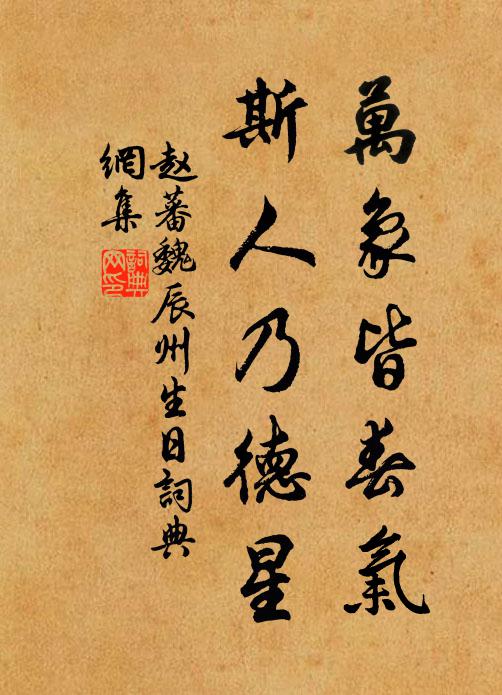 萬象皆春氣
斯人乃德星
赵蕃魏辰州生日詞典
網集
詞典
网印